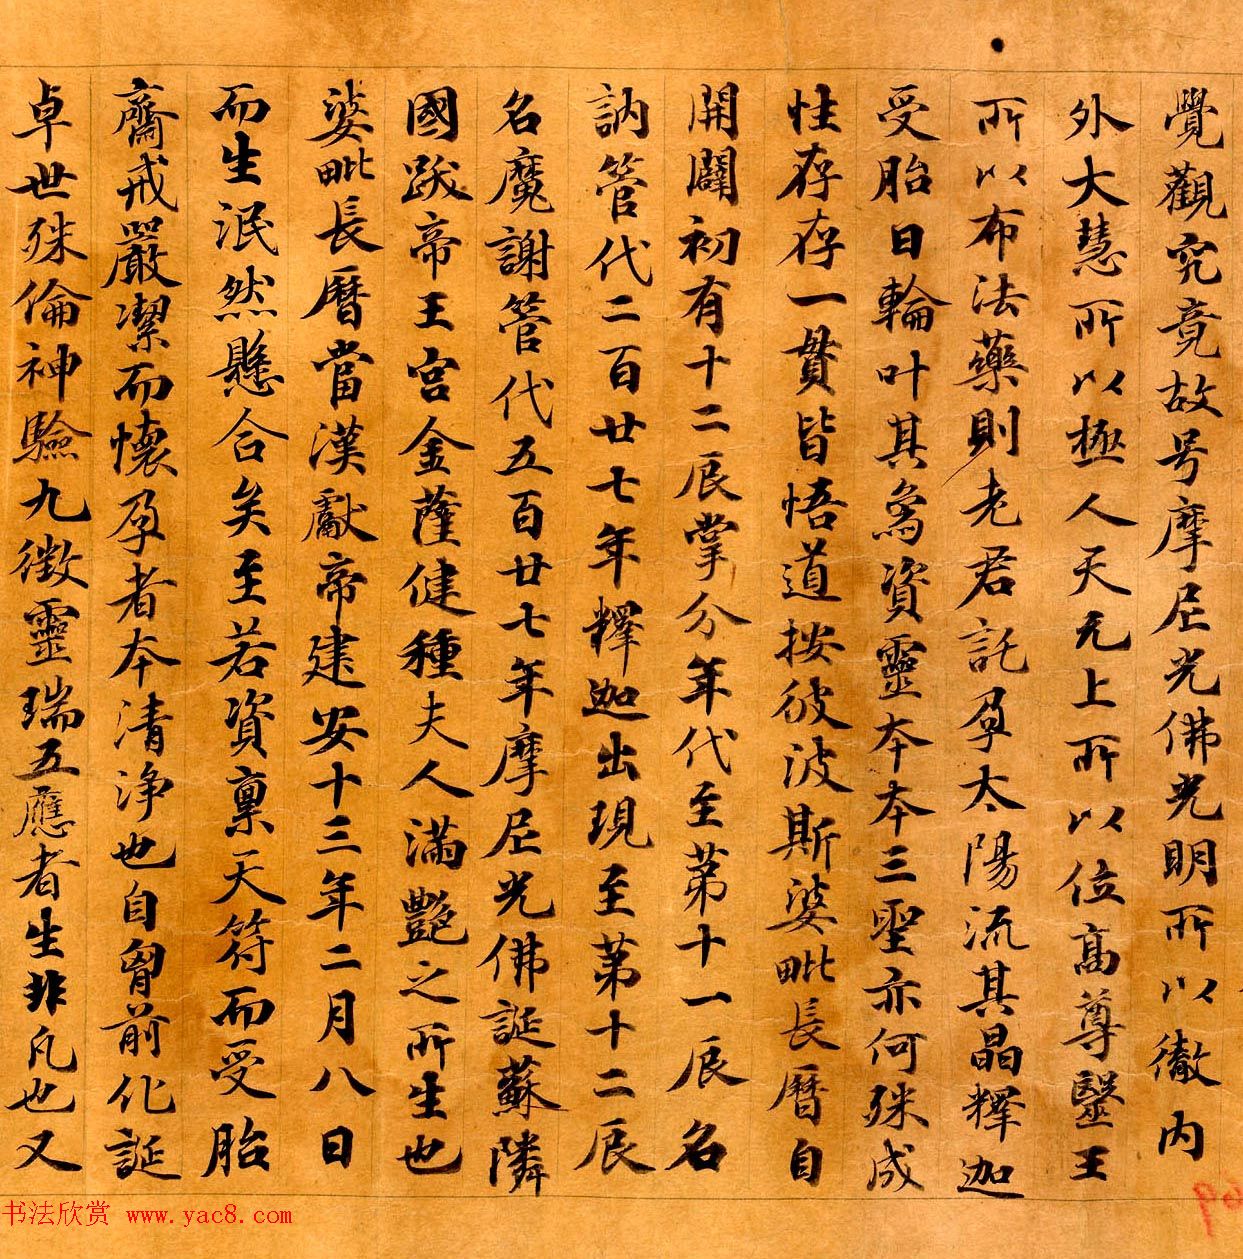 覺觀究竟故号摩尼光佛光明所以徹内
外大慧所以極人天无上所以位高尊毉王
所以布法藥則老君託孕太陽流其晶釋迦
受胎日輪叶其烏資靈本本三聖亦何殊成
性存存一貫皆悟道按彼波斯婆毗長曆自
開闢初有十二辰掌分年代至第十一辰名
訥管代二百廿七年釋迦出現至第十二辰
名魔謝管代五百廿七年摩尼光佛誕蘇隣
國跋帝王宫金薩健種夫人滿艷之所生也
婆毗長曆當漢獻帝建安十三年二月八日
而生泯然懸合矣至若資稟天符而受胎
齋戒嚴潔而懷孕者本清浄也自胷前化誕
卓世殊倫神驗九徵靈瑞五應者生非凡也又
书法欣赏 www.yac8.com